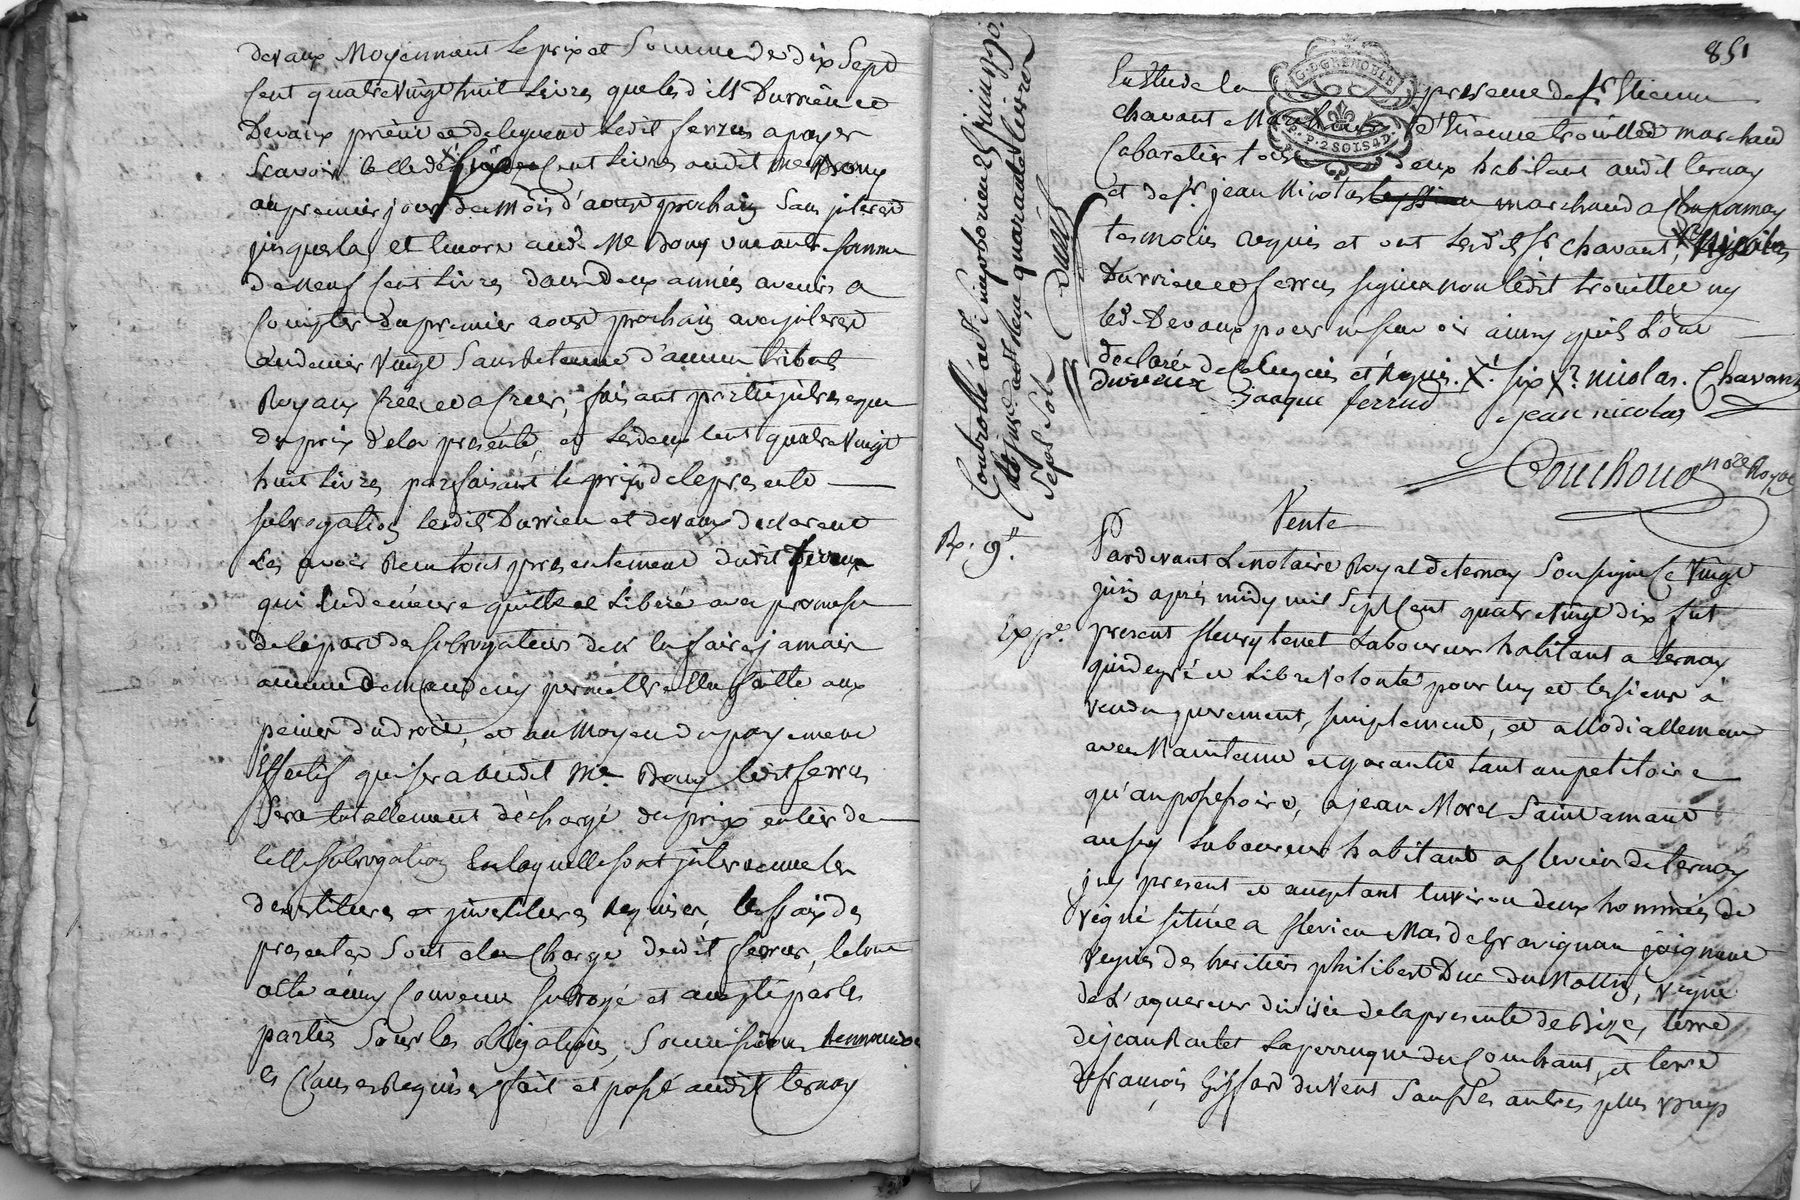 devaux Moyennant le prix et Somme de dix Sept
Cent quatre Vingt huit Livres que lesd ils Durrieu et
Devaux prient et deleguent Ledit ferrus a payer
Scavoir celle de Cent Livres audit Me Dony
au premier jour du Mois d'aout prochain Sans jnteret
jusques la et Encore aud. Me Dony une autre Somme
de Neuf Cent Livres dans deux années avenir a
Compter du premier aout prochain avec jnteret
au denier Vingt Sans Retenue d'aucun tribut
Royaux Créé et a Créer, faisant partie jntegrale
du prix de la presente, et Lesdeux Cent quatre Vingt
huit Livres parfaisant le prix de la presente
subrogation Lesdit Durrieu et devaux declarent
Les avoir Recu tout presentement dudit
qui En demeure quitte et Liberé avec promesse
de la part des subrogateurs de ne lui faire jamais
aucune demande ny permettre Etre faitte aux
peines du droit, et au Moyen du payement
Effectif qui sera audit Me Dony Ledit ferrus
Sera totallement déchargé du prix entier de
celle subrogation En laquelle sont jntervenue les
devetitures et jnvetitures Requises, les fraix des
presentes Sont a la Charge dudit ferrus, le tout
acte áinsy Convenu subrogé et accepté par les
parties Sous les obligations, Soumissions Rennonciations
et Clauses Requises fait et passé audit ternay
851
G. D. GRENOBLE
P. P. 2 SOLS 4 D.
En Etude la presence de Sr Etienne
Chavant Marchand Etienne trouillet marchand
Cabaretier tous deux habitant audit ternay
et de Sr jean Nicolas marchand a Chaponnay
temoins Requis et ont Lesdit Sr Chavant, Nicolas
Durrieu et ferrus signé non Ledit trouillet ny
led. Devaux pour ne savoir ainsy qu'ils L'ont
declaré de Ce Enquis et Requis. X. six X. nicolas. Chavant
durieux Jaaque ferrud jean nicolas
Couchoud nore Royal
Controllé a St Simphorien le 25 juin 1790.
Sept Sols
Vente
R. 9 s.
Exp.
Pardevant Le notaire Royal de ternay Soussigné Ce Vingt
juin après midy mil Sept Cent quatre Vingt dix fut
present fleury tenet Laboureur habitant a ternay
qui de gré et Libre Volonté pour luy et les siens à
vendu purement, simplement, et allodiallement
avec Maintenue et garantie tant au petitoire
qu'au possessoire, a jean Morel Saint amant
aussy Laboureur habitant a flevieu de ternay
jcy present et acceptant Environ deux hommées de
vigne située a flevieu Mas de Gravignan joignant
vignes des heritiers philibert Duc du Mattin, vigne
de L'aquereur divisée de la presente de Bize, terre
de jean Laperruque du Couchant, et terre
de françois Giffard du Vent Sauf Ses autres plus vrays